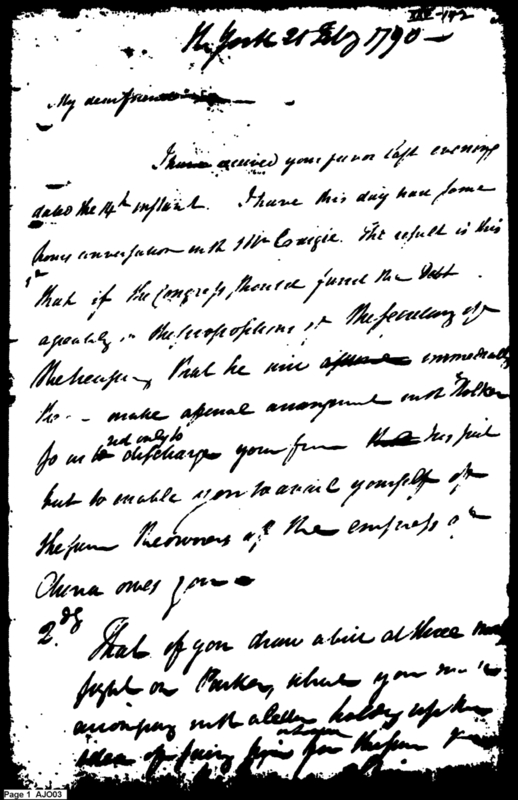 N York 21 Feby 1790 —
My dear friend
I have received your favor last evening
dated the 14th instant. I have this day had some
hours conversation with Mr Craigie. The result is this
1st
that if the Congress should fund the Debt
agreeably to the propositions of the Secretary of
the treasury that he will immediately
make a final arrangement with Holker
so as not only to discharge you from his suit
but to enable you to avail yourself of
the sum the owners of the empress of
China owes you —
2dly
That if you draw a bill at three
sight on Parker, which you
accompany with a letter holding up the
idea of for the sum
Page 1 AJO03